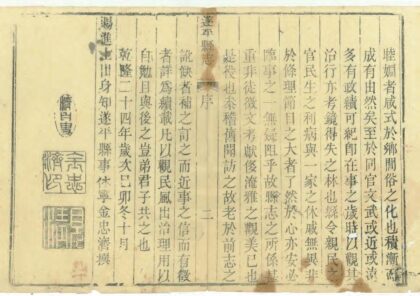 睦婣者咸式於鄉閭俗之化也積漸而
成有由然矣至於同官文武或近或
多有政績可紀卽在事之歲時以觀其
治行亦考鏡得失之林也縣令親民之
官民生之利病與一家之休戚無異非
於條理節目之大者了然於心亦安必
臨事之一無疑阻乎故縣志之所係甚
重非徒徵文考獻後淹雅之觀美已也
是役也忝稽舊聞訪之故老於前志之
訛缺者補之訂之而近事之信而有徵
者詳爲續載凡以觀民風出治理用以
自勉且與後之豈弟君子共之也
乾隆二十四年歲次己卯冬十月
賜進士出身知遂平縣事休寧金忠濟撰
遂平縣志
序
二
金忠濟印